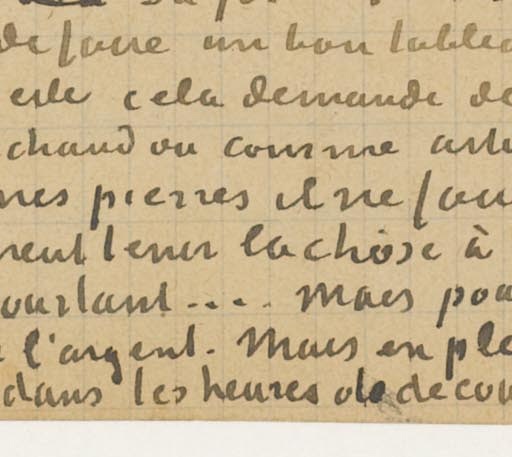 de faire un bon tablea
este cela demande de
chand ou comme arti
nes pierres il ne fau
veut tenir la chose à
ourtant.... Mais pou
l'argent. Mais en ple
dans les heures de decou